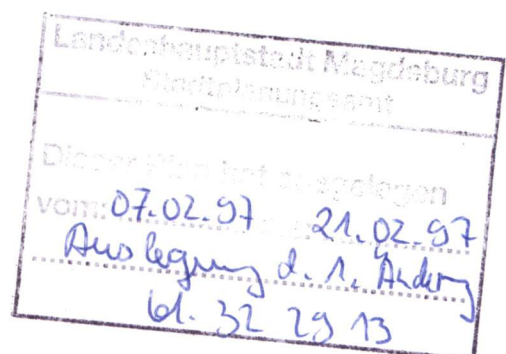 Landeshauptstadt Magdeburg
Stadtplanungsamt
Dieser Plan hat ausgelegen
vom: 07.02.97 21.02.97
Auslegung d. 1. Änderung
32 29 13